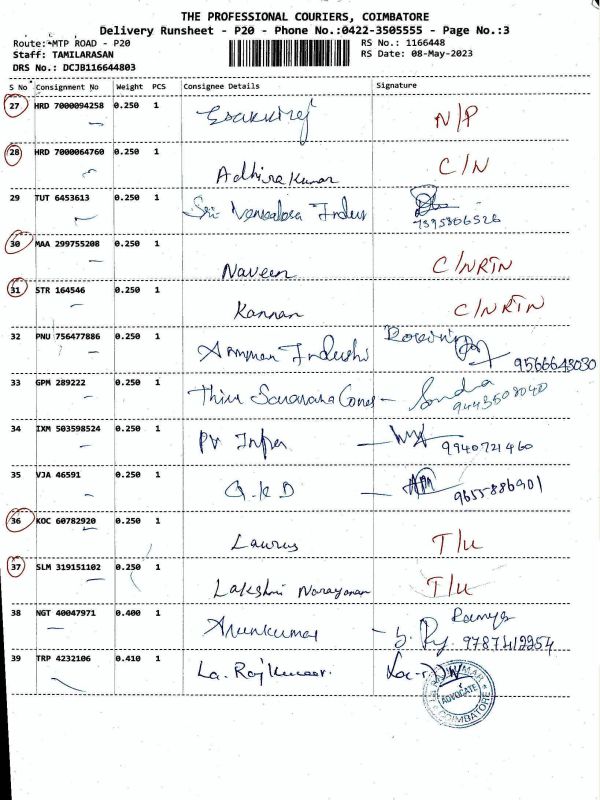 THE PROFESSIONAL COURIERS, COIMBATORE
Delivery Runsheet - P20 - Phone No.:0422-3505555 - Page No.:3
Route: MTP ROAD - P20 RS No.: 1166448
Staff: TAMILARASAN RS Date: 08-May-2023
DRS No.: DCJB116644803
S No Consignment No Weight PCS Consignee Details Signature
27 HRD 7000094258 0.250 1 N/P
28 HRD 7000064760 0.250 1 Adhira Kumar C/N
29 TUT 6453613 0.250 1 Sri 7395806526
30 MAA 299755208 0.250 1 Naveen C/NRTN
31 STR 164546 0.250 1 Kannan C/NRTN
32 PNU 756477886 0.250 1 9566643030
33 GPM 289222 0.250 1 9443508040
34 IXM 503598524 0.250 1 PV Infra 9940721460
35 VJA 46591 0.250 1 G.K.D 9655886901
36 KOC 60782920 0.250 1 Laurus T/U
37 SLM 319151102 0.250 1 Lakshmi Narayanan T/U
38 NGT 40047971 0.400 1 Arunkumar Ramya 9787412254
39 TRP 4232106 0.410 1 La. Rajkumar.
ADVOCATE
COIMBATORE